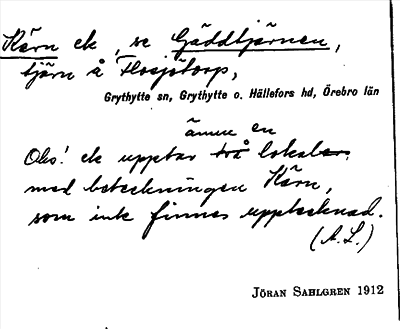 Kärn ek, se Gäddtjärnen,
tjärn å Hosjötorp,
Grythytte sn, Grythytte o. Hällefors hd, Örebro län
ännu en
Obs! ek upptar två lokaler
med beteckningen Kärn,
som inte finnes upptecknad.
(A.L.)
JÖRAN SAHLGREN 1912